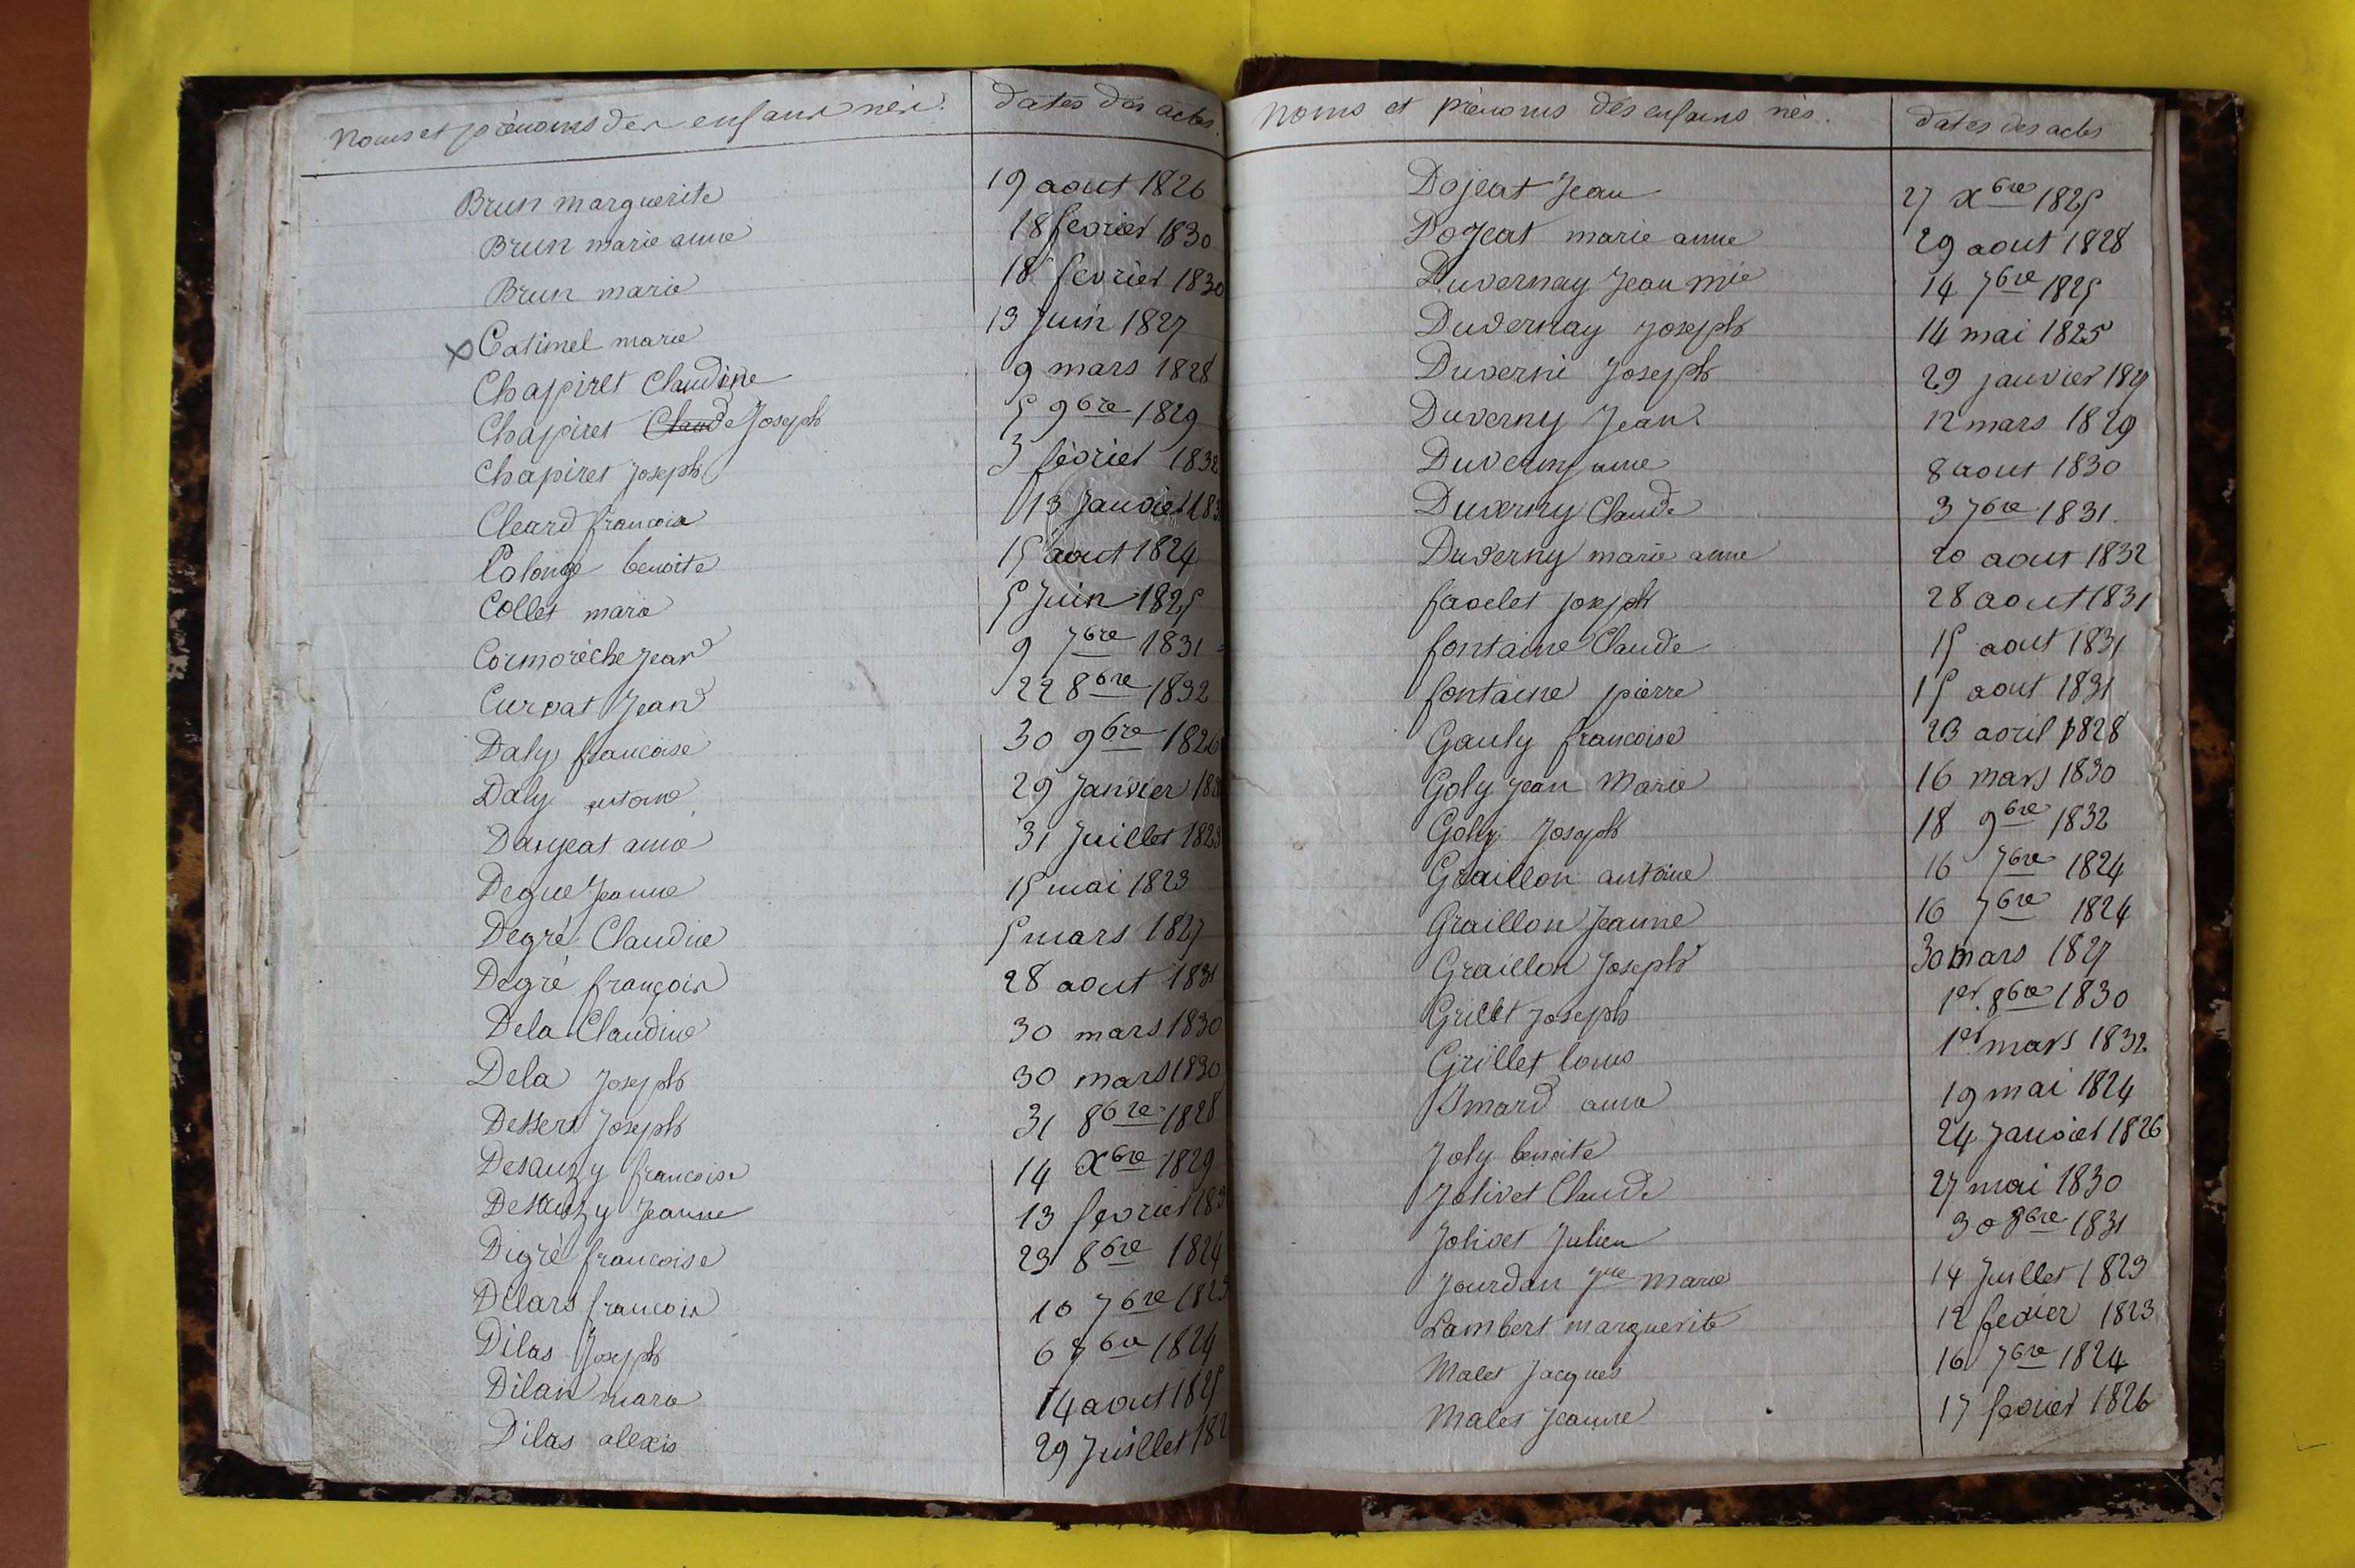 Noms et prénoms des enfans nés. dates des actes.
Brun marguerite 19 aout 1826
Brun marie anne 18 fevrier 1830
Brun marie 18 fevrier 1830
x Catimel marie 13 Juin 1827
Chapiret Claudine 9 mars 1828
Chapiret Claude Joseph 5 9bre 1829
Chapiret Joseph 3 fevrier 1832
Cleard francois 13 Janvier
Colonge benoite 15 aout 1824
Collet marie 5 Juin 1825
Cormorèche Jean 9 7bre 1831
Curvat Jean 22 8bre 1832
Daly francoise 30 9bre 1826
Daly antoine 29 Janvier
Dargeat anne 31 Juillet
Degue Jeanne 15 mai 1823
Degré Claudine 5 mars 1827
Degré françois 28 aout 1831
Dela Claudine 30 mars 1830
Dela Joseph 30 mars 1830
Dessert Joseph 31 8bre 1828
Desauzy francoise 14 Xbre 1829
Desauzy Jeanne 13 fevrier
Digré francoise 23 8bre 1824
Dilars francois 10 7bre
Dilas Joseph 6 1824
Dilan marie 14 aout 1825
Dilas alexis 29 Juillet
Noms et prénoms des enfans nés. dates des actes
Dojeat Jean 27 Xbre 1825
Dojeat marie anne 29 aout 1828
Duvernay Jean mie 14 7bre 1825
Duvernay Joseph 14 mai 1825
Duverni Joseph 29 janvier
Duverny Jean 12 mars 1829
Duverny anne 8 aout 1830
Duverny Claude 3 7bre 1831.
Duverny marie anne 20 aout 1832
favelet joseph 28 aout 1831
fontaine Claude 15 aout 1831
fontaine pierre 15 aout 1831
Gauly francoise 23 avril 1828
Goly jean Marie 16 mars 1830
Goly Joseph 18 9bre 1832
Graillon antoine 16 7bre 1824
Graillon Jeanne 16 7bre 1824
Graillon Joseph 30 mars 1827
Grillet Joseph 1er. 8bre 1830
Grillet louis 1er. mars 1832
Imard anne 19 mai 1824
Joly benoite 24 Janvier 1826
Jolivet Claude 27 mai 1830
Jolivet Julien 30 8bre 1831
Jourdan Marie 14 Juillet 1823
Lambert marguerite 12 fevier 1823
Malet Jacques 16 7bre 1824
Malet Jeanne 17 fevrier 1826